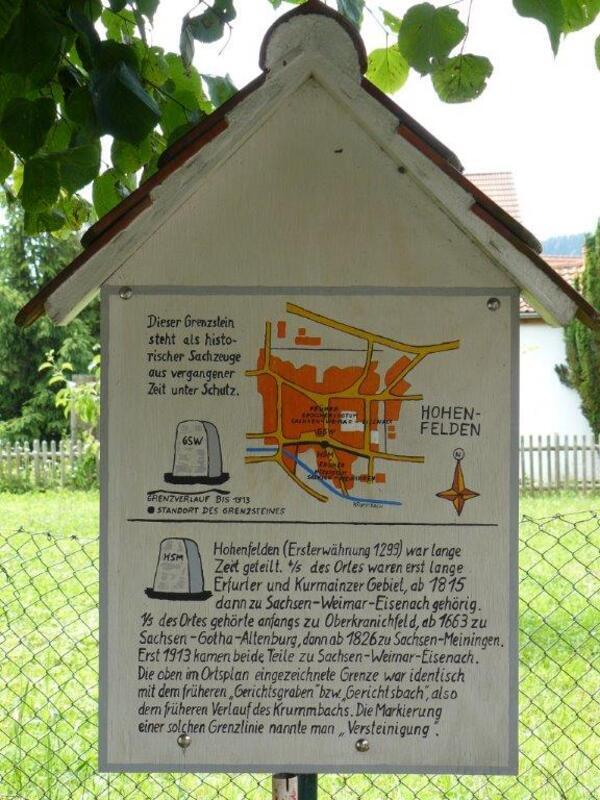 Dieser Grenzstein
steht als histo-
rischer Sachzeuge
aus vergangener
Zeit unter Schutz.
GSW
GRENZVERLAUF BIS 1913
STANDORT DES GRENZSTEINES
FRÜHER
SACHSEN-WEIMAR-EISENACH
GSW
HSM
FRÜHER
SACHSEN-MEININGEN
HOHEN-
FELDEN
N
HSM
Hohenfelden (Ersterwähnung 1299) war lange
Zeit geteilt. 4/5 des Ortes waren erst lange
Erfurter und Kurmainzer Gebiet, ab 1815
dann zu Sachsen-Weimar-Eisenach gehörig.
1/5 des Ortes gehörte anfangs zu Oberkranichfeld, ab 1663 zu
Sachsen-Gotha-Altenburg, dann ab 1826 zu Sachsen-Meiningen.
Erst 1913 kamen beide Teile zu Sachsen-Weimar-Eisenach.
Die oben im Ortsplan eingezeichnete Grenze war identisch
mit dem früheren „Gerichtsgraben" bzw. „Gerichtsbach", also
dem früheren Verlauf des Krummbachs. Die Markierung
einer solchen Grenzlinie nannte man „Versteinigung".